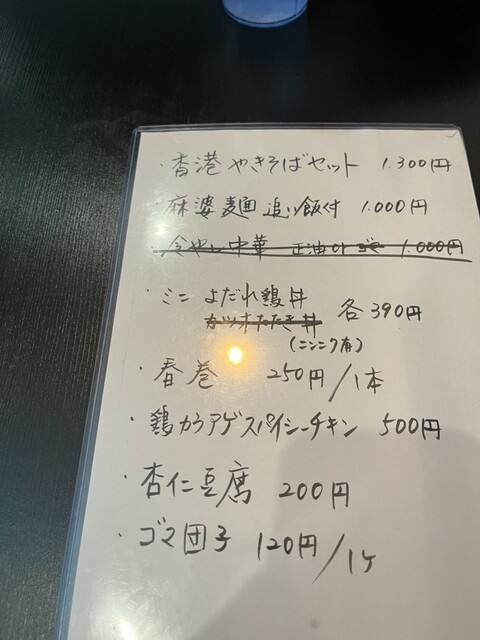 ・香港やきそばセット 1.300円
・麻婆麺 追い飯付 1.000円
・冷やし中華 正油 or ゴマ 1.000円
・ミニ よだれ鶏丼 各390円
カツオたたき丼
(ニンニク有)
・春巻 250円/1本
・鶏カラアゲスパイシーチキン 500円
・杏仁豆腐 200円
・ゴマ団子 120円/1ケ